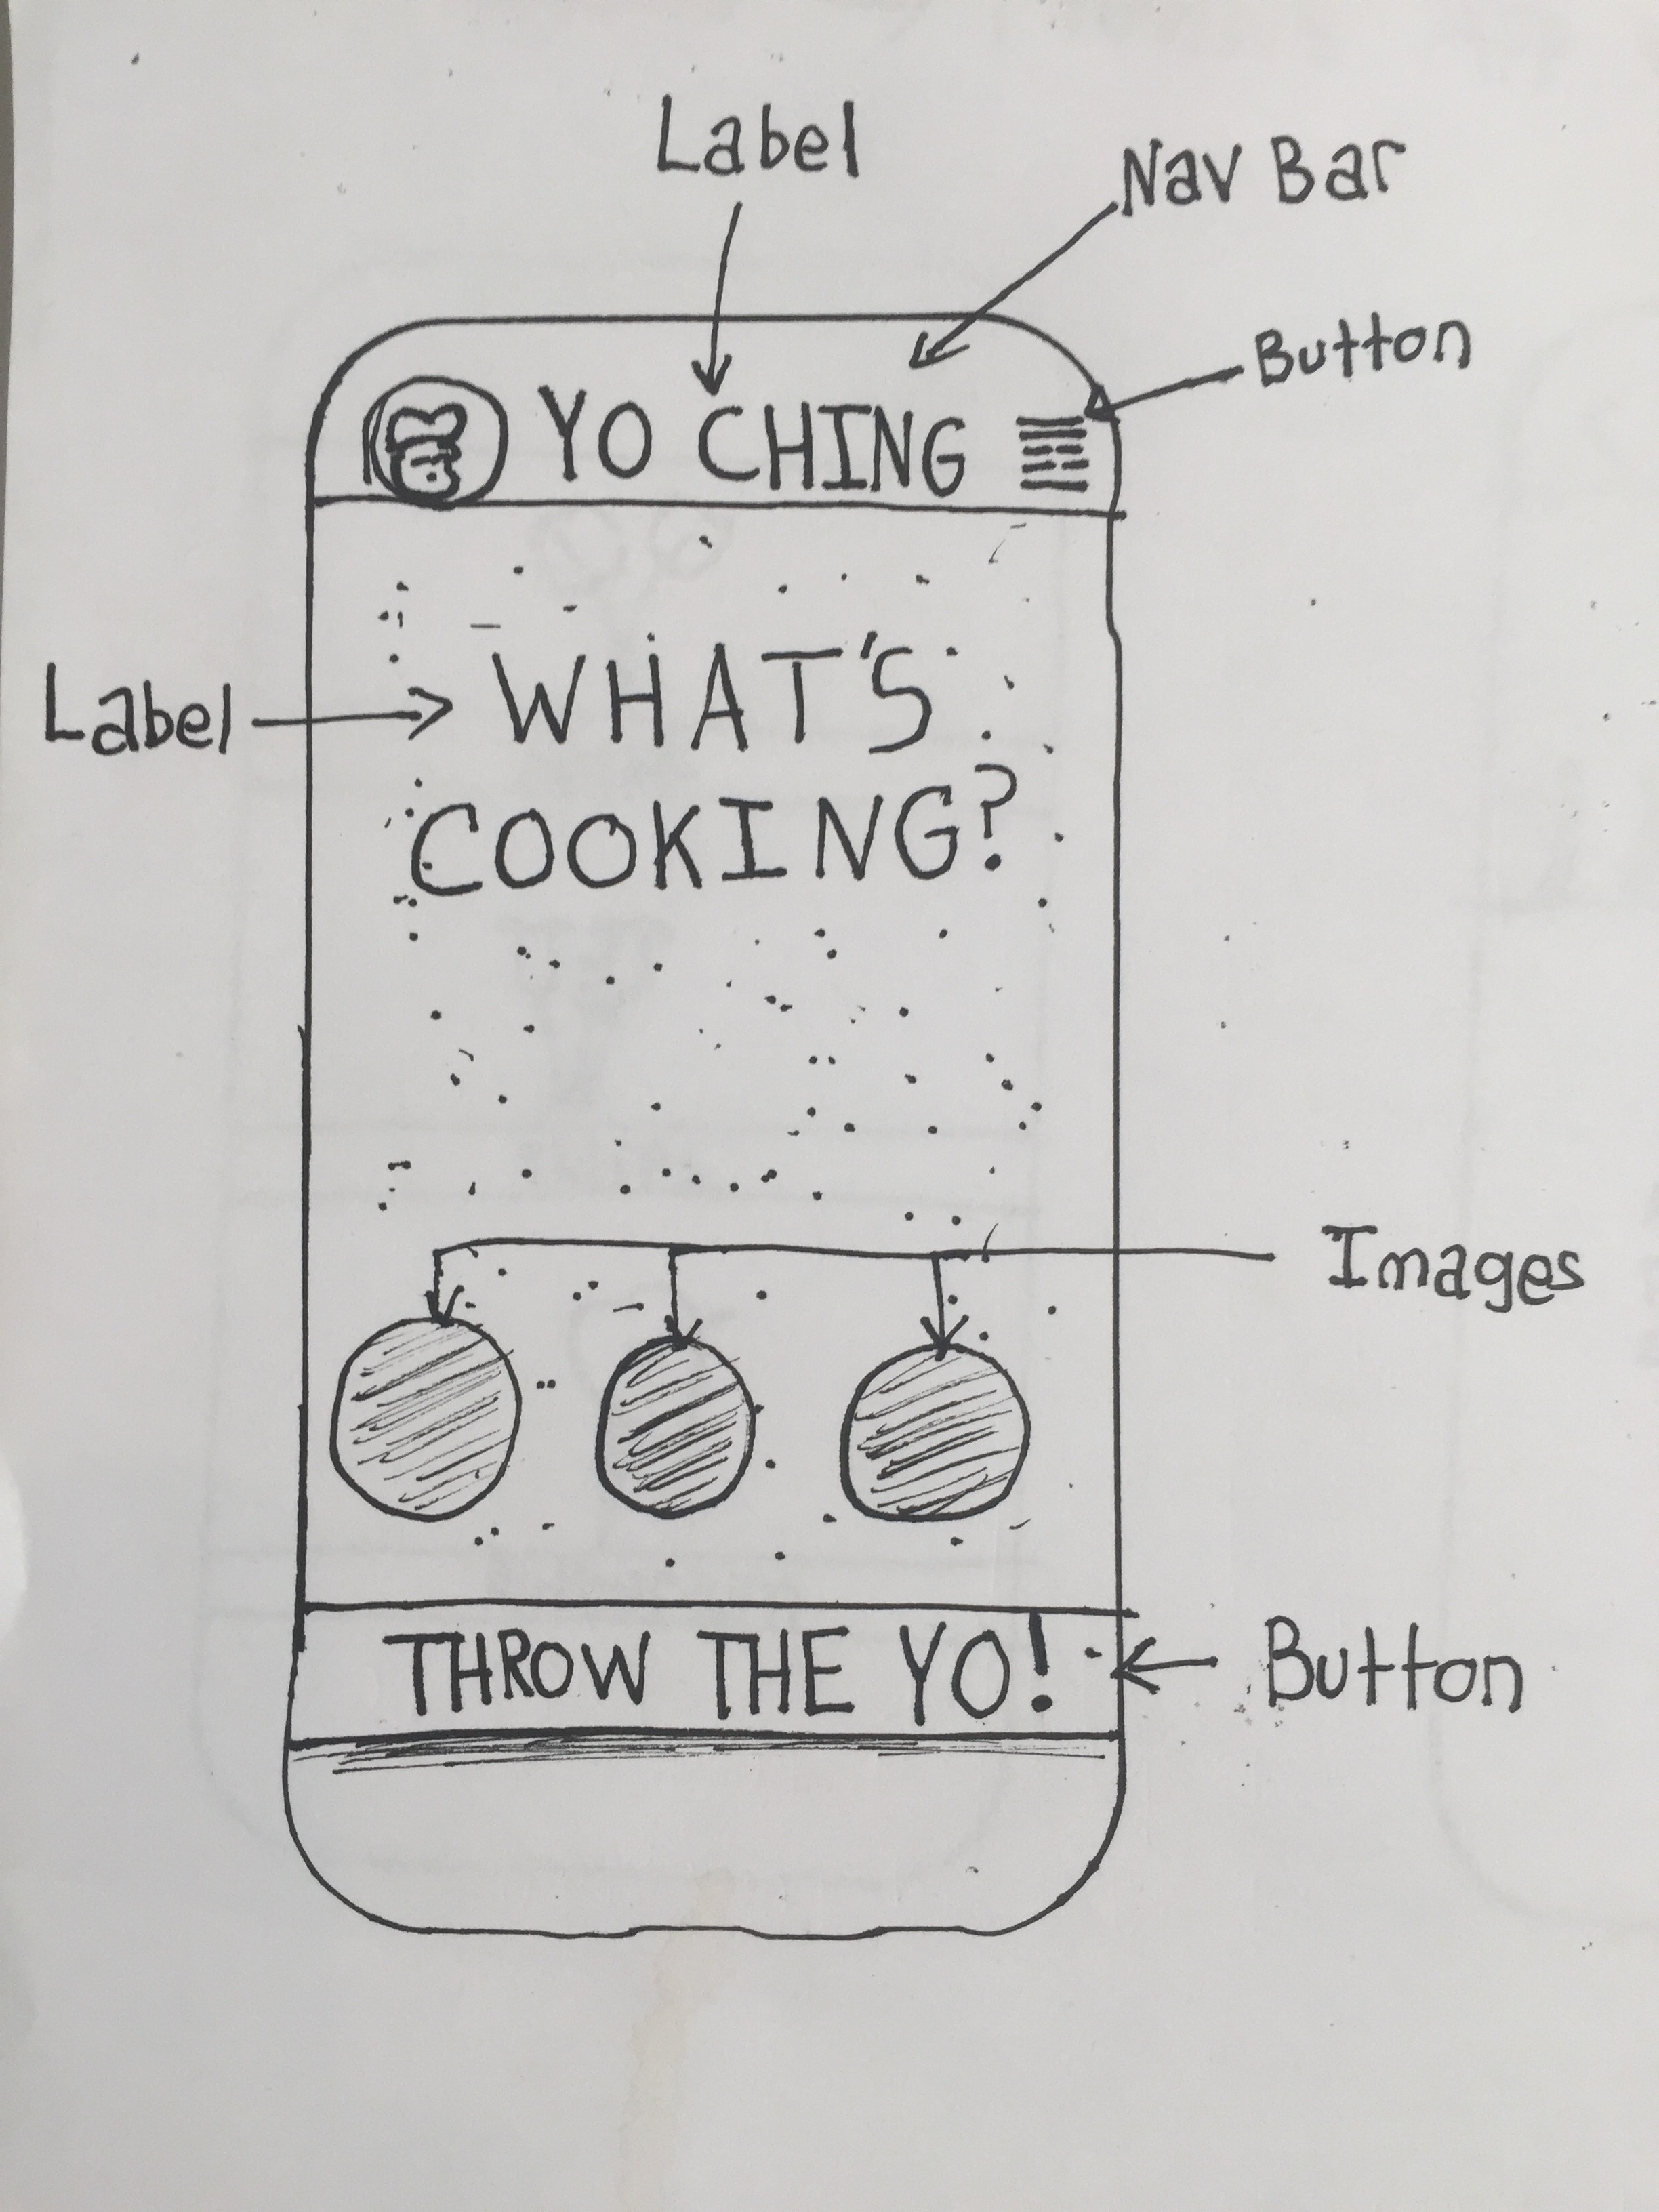 Label
Nav Bar
Button
YO CHING
Label
WHAT'S
COOKING?
Images
THROW THE YO!
Button